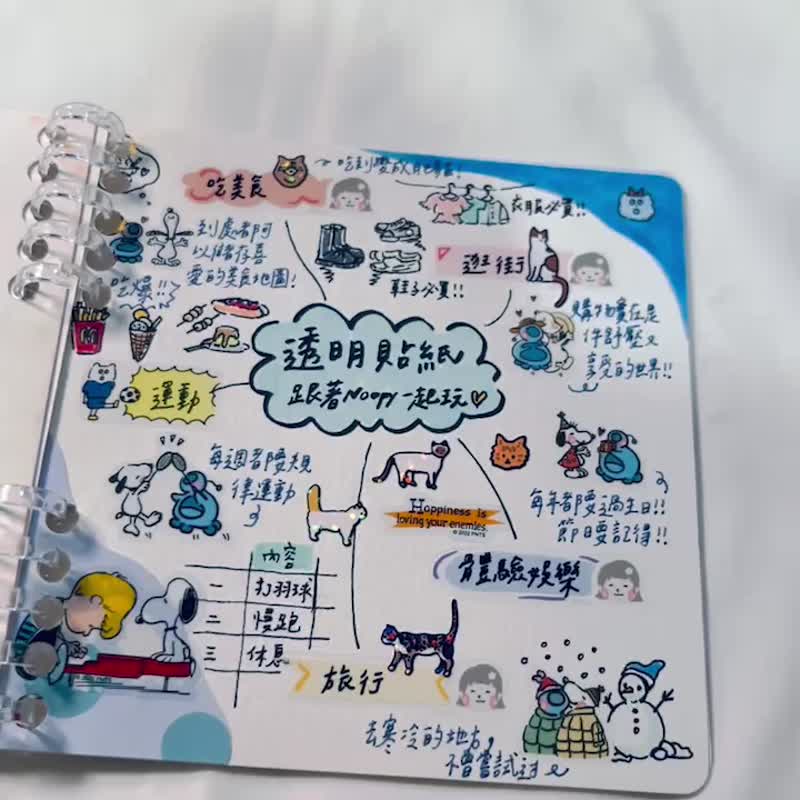 吃美食
吃到變成肥豬!
衣服必買!!
到處都可
以儲存喜
愛的美食地圖!
吃爆!!
鞋子必買!!
逛街
購物實在是
件舒壓又
享受的世界!!
透明貼紙
跟著Noopy一起玩
運動
每週都要規
律運動
每年都要過生日!!
節日要記得!!
Happiness is
loving your enemies.
體驗娛樂
內容
一 打羽球
二 慢跑
三 休息
旅行
去寒冷的地方,
不曾嘗試過